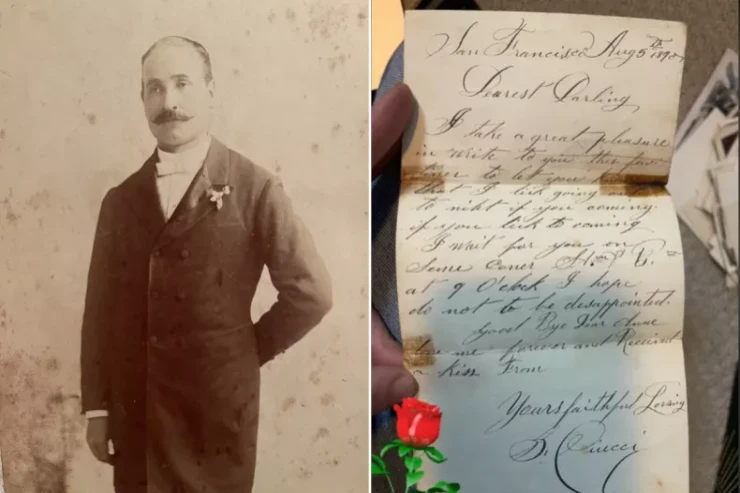 San Francisco Aug 5th
Dearest Darling
I take a great pleasure
in write to you this few
to let you
that I lick going
to niht if you coming
if you lick to coming
I wait for you on
Same Coner St.
at 9 O'clock I hope
do not to be disappointed.
Good Bye Dear
love me forever and Received
a kiss From
Yours faithful Loving